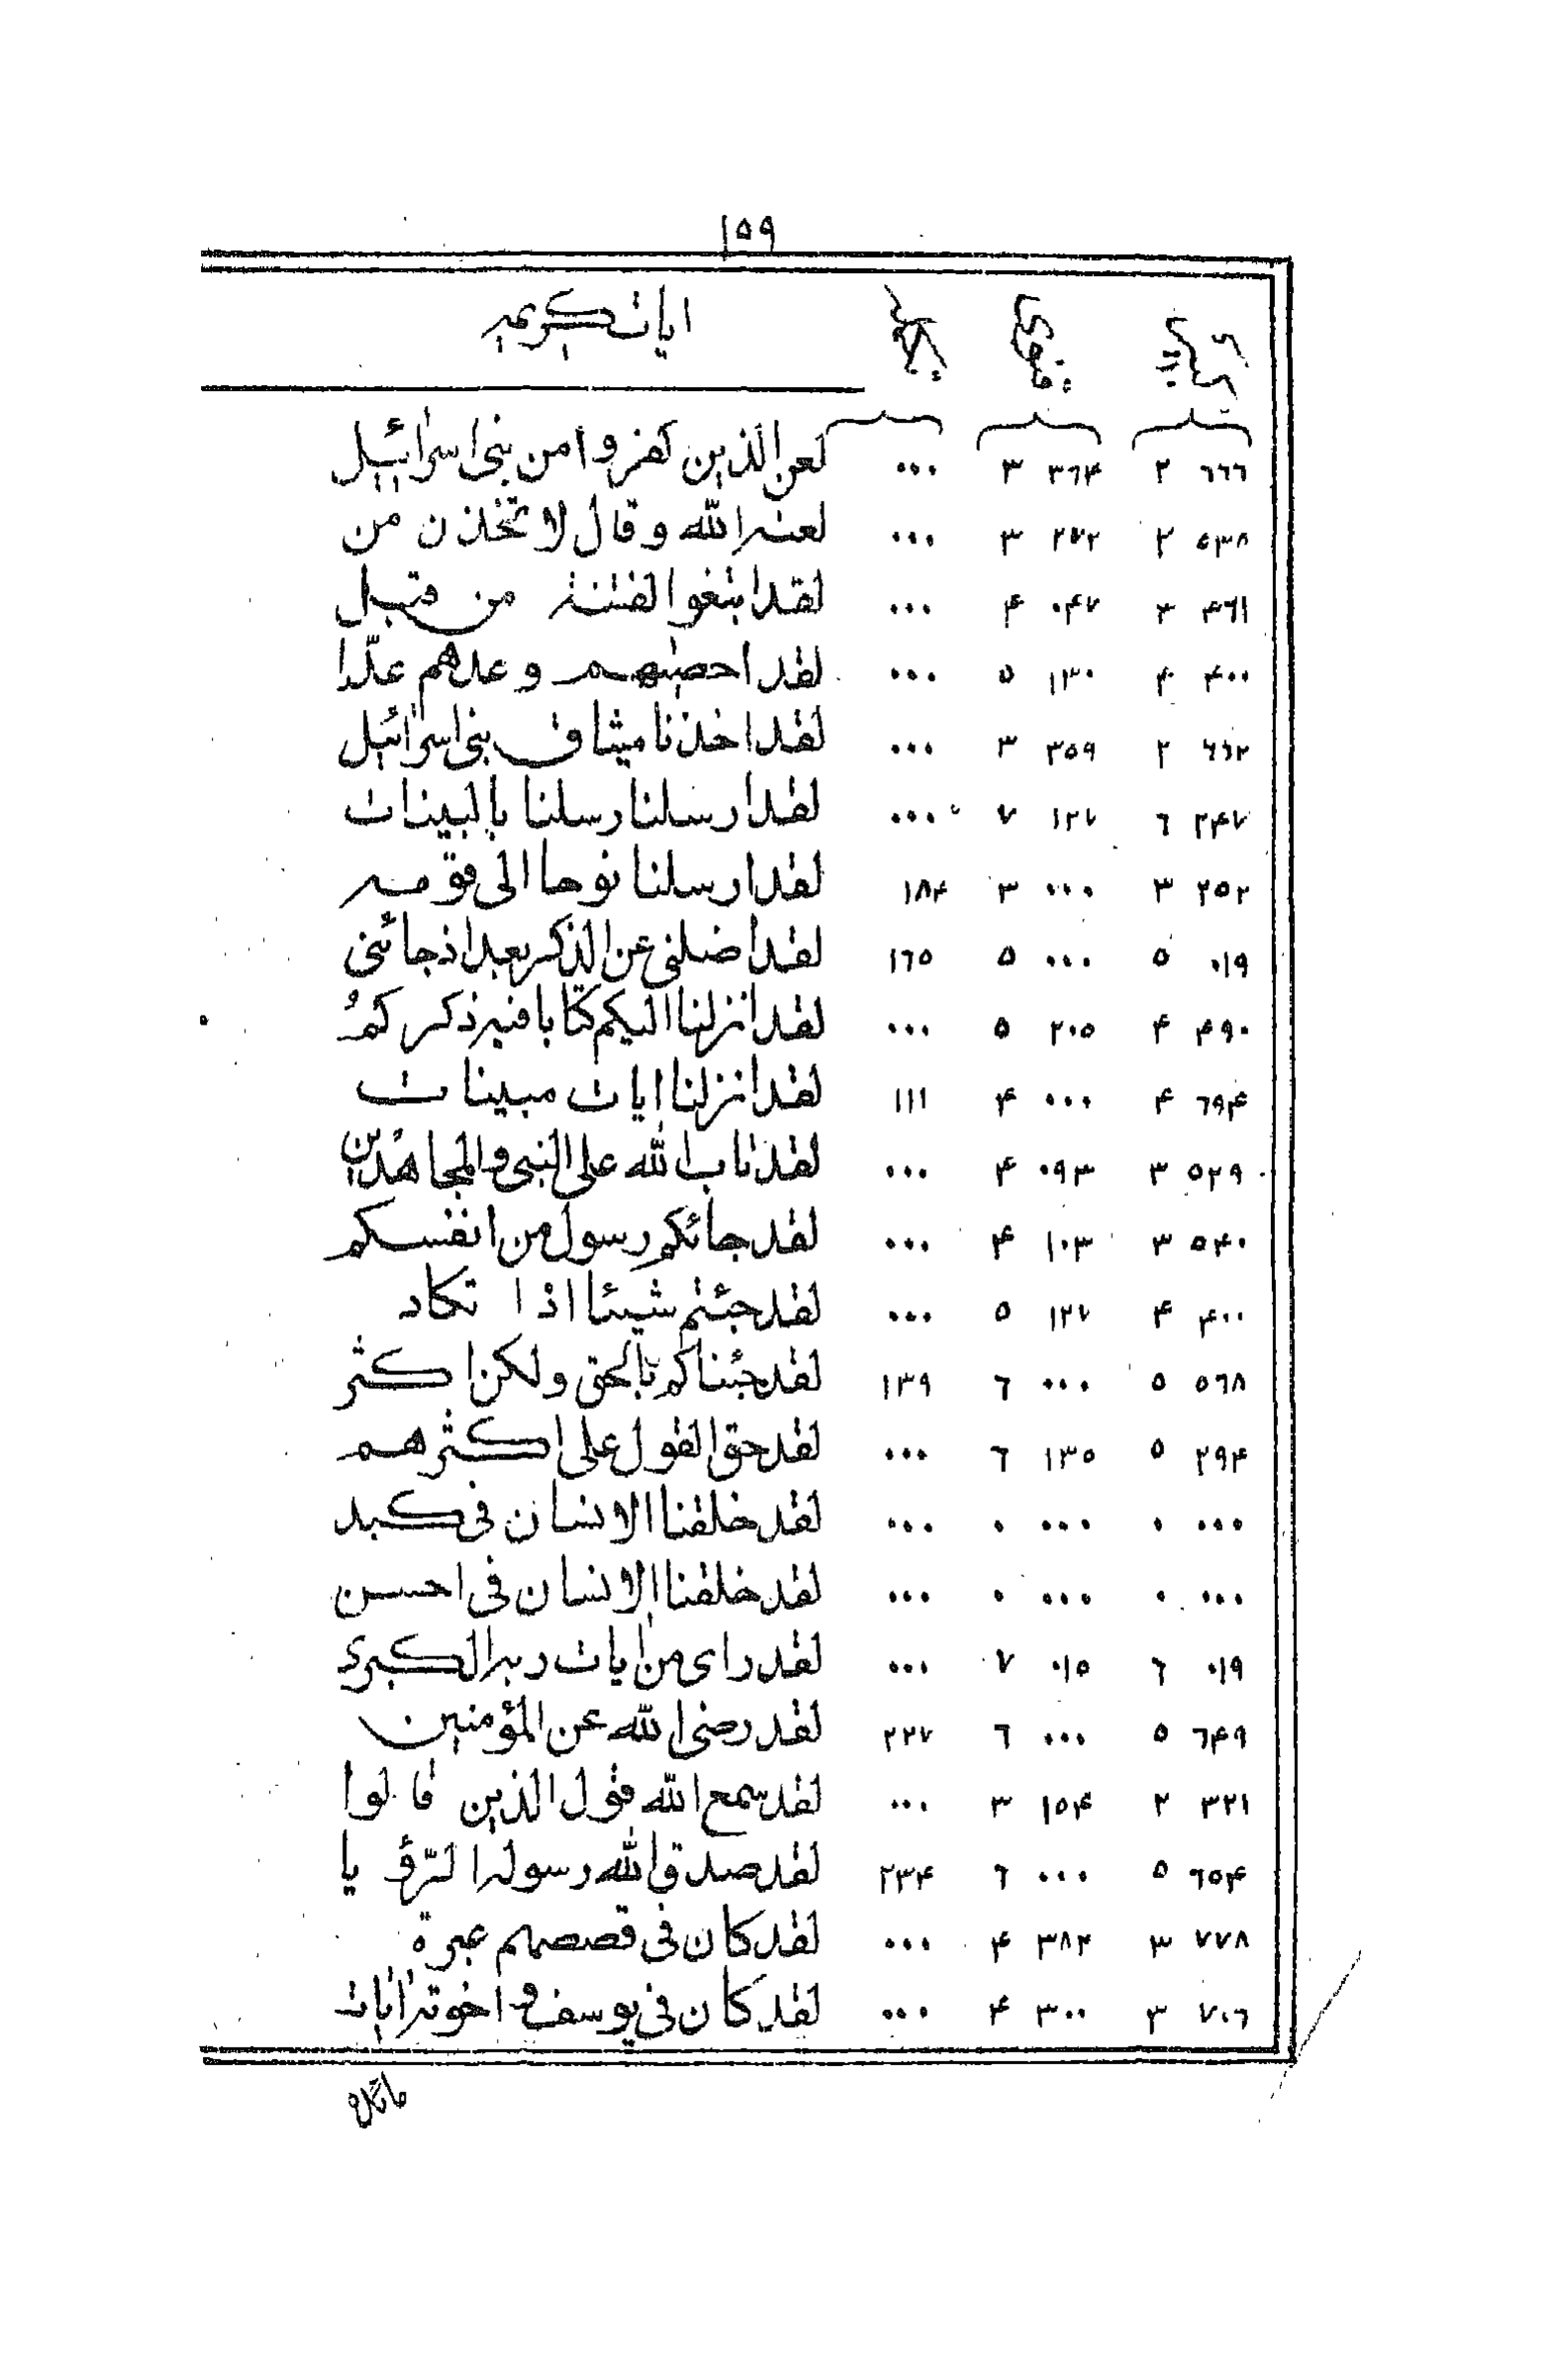 ١٥٩
ايات كريمه
٦٦٦ ٢ ٣٦۴ ٣ ٠٠٠ لعن الذين كفروا من بنى اسرائيل
٥٣٨ ٢ ٢٧٢ ٣ ٠٠٠ لعنه الله وقال لاتخذن من
۴٦١ ٣ ٠۴٧ ۴ ٠٠٠ لقد ابتغوا الفتنة من قبل
۴٠٠ ۴ ١٣٠ ٥ ٠٠٠ لقد احصيهم وعدهم عدّا
٦٦٢ ٢ ٣٥٩ ٣ ٠٠٠ لقد اخذنا ميثاق بنى اسرائيل
٢۴٧ ٦ ١٢٧ ٧ ٠٠٠ لقد ارسلنا رسلنا بالبينات
٢٥٢ ٣ ٠٠٠ ٣ ١٨۴ لقد ارسلنا نوحا الى قومه
٠١٩ ٥ ٠٠٠ ٥ ١٦٥ لقد اضلنى عن الذكر بعد اذ جائنى
۴٩٠ ۴ ٢٠٥ ٥ ٠٠٠ لقد انزلنا اليكم كتابا فيه ذكركم
٦٩۴ ۴ ٠٠٠ ۴ ١١١ لقد انزلنا ايات مبينات
٥٢٩ ٣ ٠٩٣ ۴ ٠٠٠ لقد تاب الله على النبى والمجاهدين
٥۴٠ ٣ ١٠٣ ۴ ٠٠٠ لقد جائكم رسول من انفسكم
۴٠٠ ۴ ١٢٧ ٥ ٠٠٠ لقد جئتم شيئا اذا تكاد
٥٦٨ ٥ ٠٠٠ ٦ ١٣٩ لقد جئناكم بالحق ولكن اكثر
٢٩۴ ٥ ١٣٥ ٦ ٠٠٠ لقد حق القول على اكثرهم
٠٠٠ ٠ ٠٠٠ ٠ ٠٠٠ لقد خلقنا الانسان فى كبد
٠٠٠ ٠ ٠٠٠ ٠ ٠٠٠ لقد خلقنا الانسان فى احسن
٠١٩ ٦ ٠١٥ ٧ ٠٠٠ لقد راى من ايات ربه الكبرى
٦۴٩ ٥ ٠٠٠ ٦ ٢٢٧ لقد رضى الله عن المؤمنين
٣٢١ ٢ ١٥۴ ٣ ٠٠٠ لقد سمع الله قول الذين قالوا
٦٥۴ ٥ ٠٠٠ ٦ ٢٣۴ لقد صدق الله رسوله الرّؤيا
٧٧٨ ٣ ٣٨٢ ۴ ٠٠٠ لقد كان فى قصصهم عبرة
٧٠٦ ٣ ٣٠٠ ۴ ٠٠٠ لقد كان فى يوسف واخوته ايات